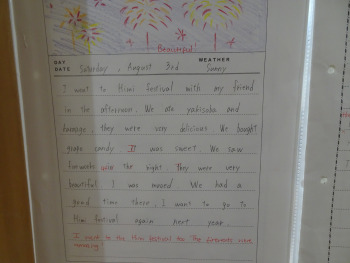 Beautiful!
DAY DATE Saturday, August 3rd WEATHER Sunny
I went to Himi festival with my friend
in the afternoon. We ate yakisoba and
they were very delicious. We bought
grape candy. It was sweet. We saw
fireworks the night. They were very
beautiful. I was moved. We had a
good time there. I want to go to
Himi festival again next year.
I went to the Himi festival too. The fireworks were
amazing